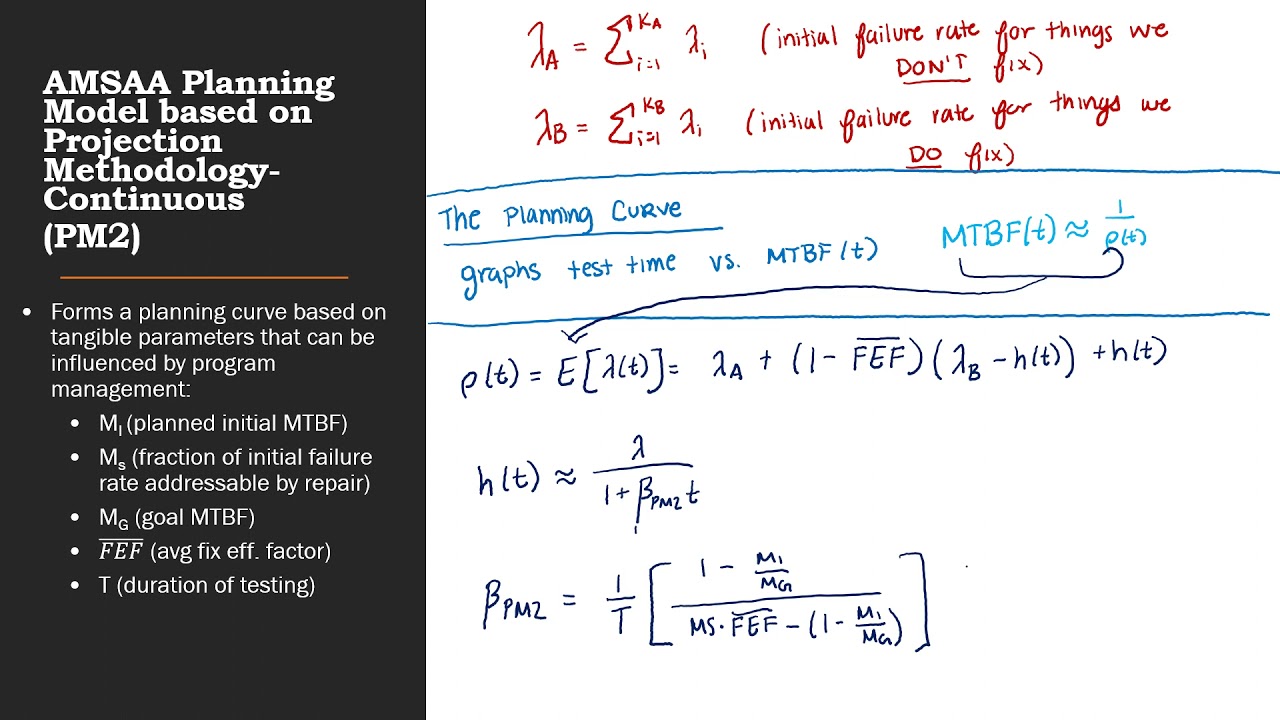 AMSAA Planning
Model based on
Projection
Methodology-
Continuous
(PM2)
• Forms a planning curve based on
tangible parameters that can be
influenced by program
management:
• M_I (planned initial MTBF)
• M_s (fraction of initial failure
rate addressable by repair)
• M_G (goal MTBF)
• \overline{FEF} (avg fix eff. factor)
• T (duration of testing)
λ_A = ∑_{i=1}^{K_A} λ_i (initial failure rate for things we
DON'T fix)
λ_B = ∑_{i=1}^{K_B} λ_i (initial failure rate for things we
DO fix)
The Planning Curve
graphs test time vs. MTBF(t)
MTBF(t) ≈ 1/ρ(t)
ρ(t) = E[λ(t)] = λ_A + (1 - \overline{FEF})(λ_B - h(t)) + h(t)
h(t) ≈ λ/(1 + β_{PM2} t)
β_{PM2} = 1/T [ (1 - M_I/M_G) / (MS · \overline{FEF} - (1 - M_I/M_G)) ]